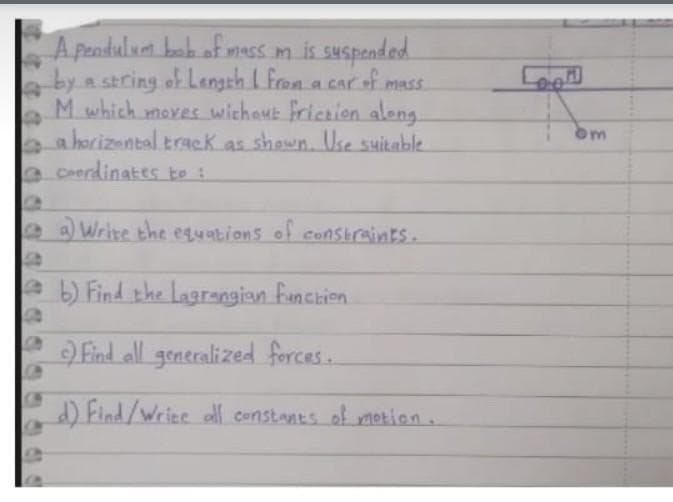 A pendulum bob of mass m is suspended
by a string of Length l from a car of mass
M which moves without friction along
a horizontal track as shown. Use suitable
coordinates to :
M
m
a) Write the equations of constraints.
b) Find the Lagrangian function
c) Find all generalized forces.
d) Find/Write all constants of motion.